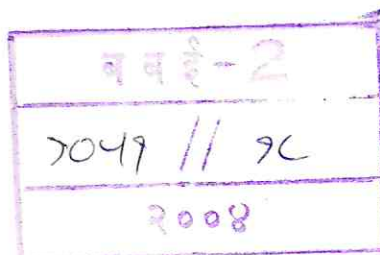 बबई-2
२०५१ // १८
२००४